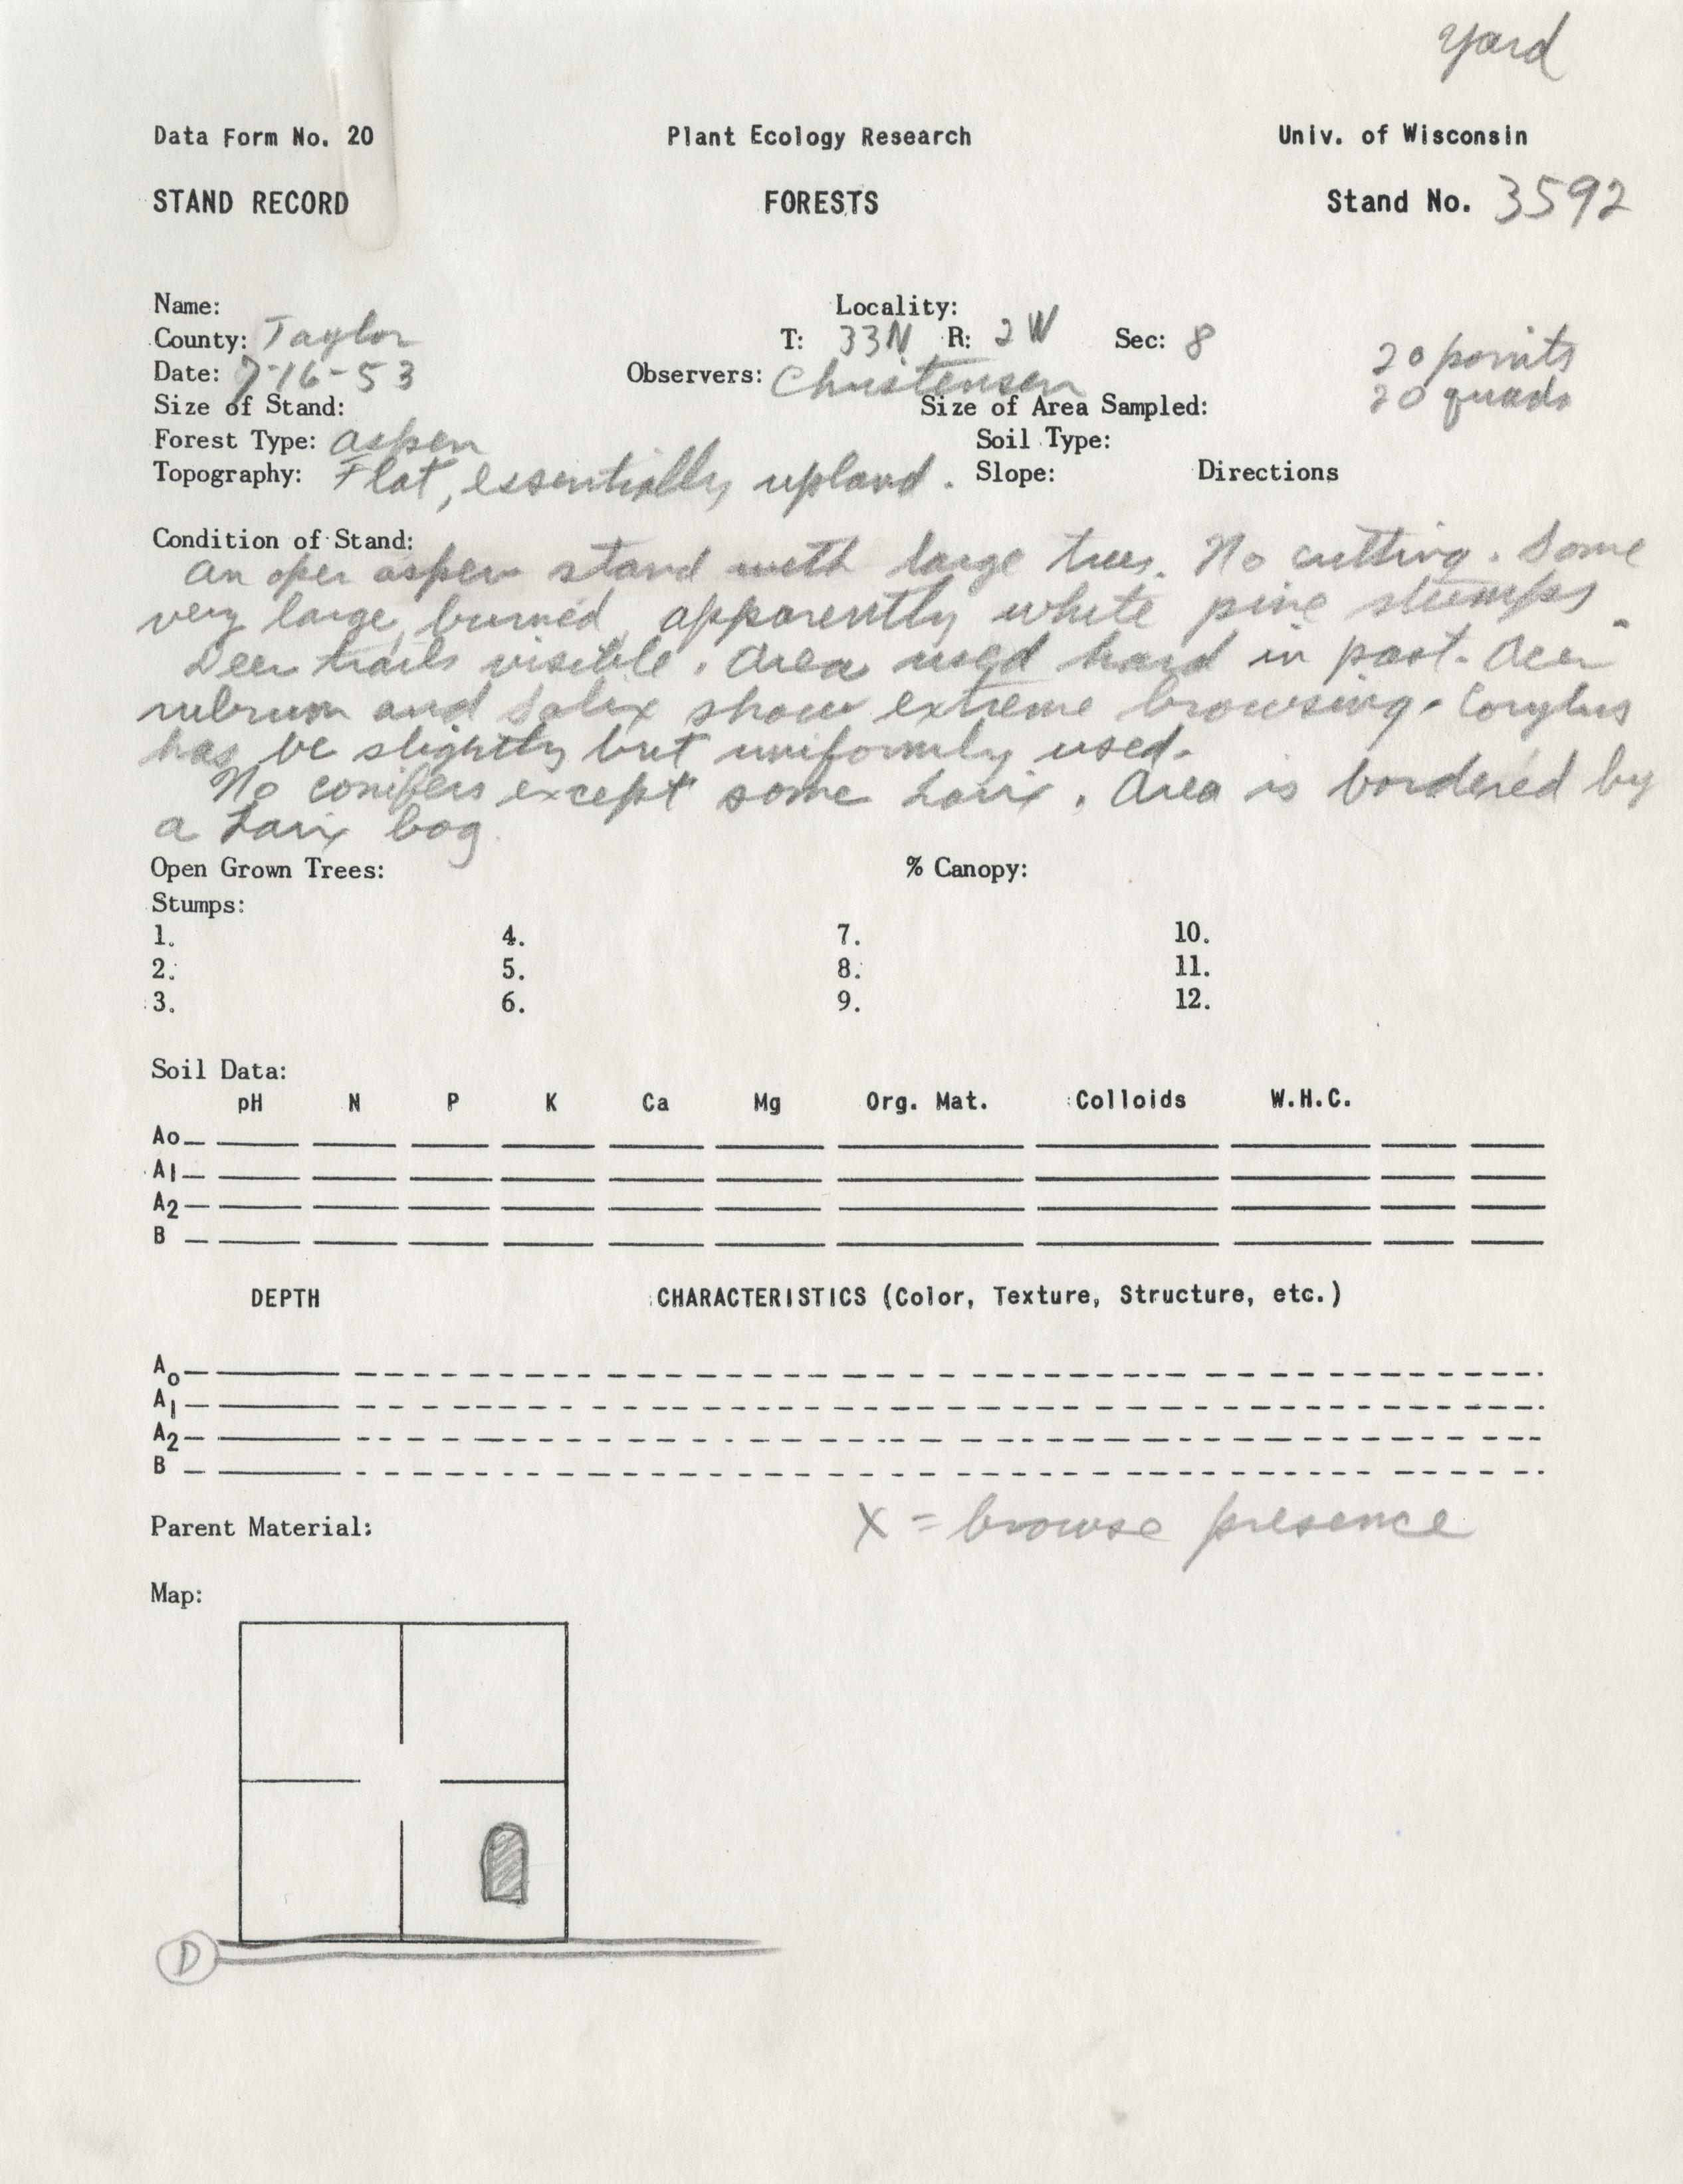 Yard
Data Form No. 20 Plant Ecology Research Univ. of Wisconsin
STAND RECORD FORESTS Stand No. 3592
Name: Locality:
County: Taylor T: 33N R: 2W Sec: 8 20 points
Date: 7-16-53 Observers: Christensen 20 quads
Size of Stand: Size of Area Sampled:
Forest Type: aspen Soil Type:
Topography: Flat, essentially upland. Slope: Directions
Condition of Stand:
An open aspen stand with large trees. No cutting. Some
very large, burned, apparently white pine stumps.
Deer trails visible. Area used hard in past. Acer
rubrum and Salix show extreme browsing. Corylus
has be slightly but uniformly used.
No conifers except some Larix. Area is bordered by
a Larix bog.
Open Grown Trees: % Canopy:
Stumps:
1. 4. 7. 10.
2. 5. 8. 11.
3. 6. 9. 12.
Soil Data:
pH N P K Ca Mg Org. Mat. Colloids W.H.C.
Ao
A1
A2
B
DEPTH CHARACTERISTICS (Color, Texture, Structure, etc.)
Ao
A1
A2
B
Parent Material: X = browse presence
Map:
D